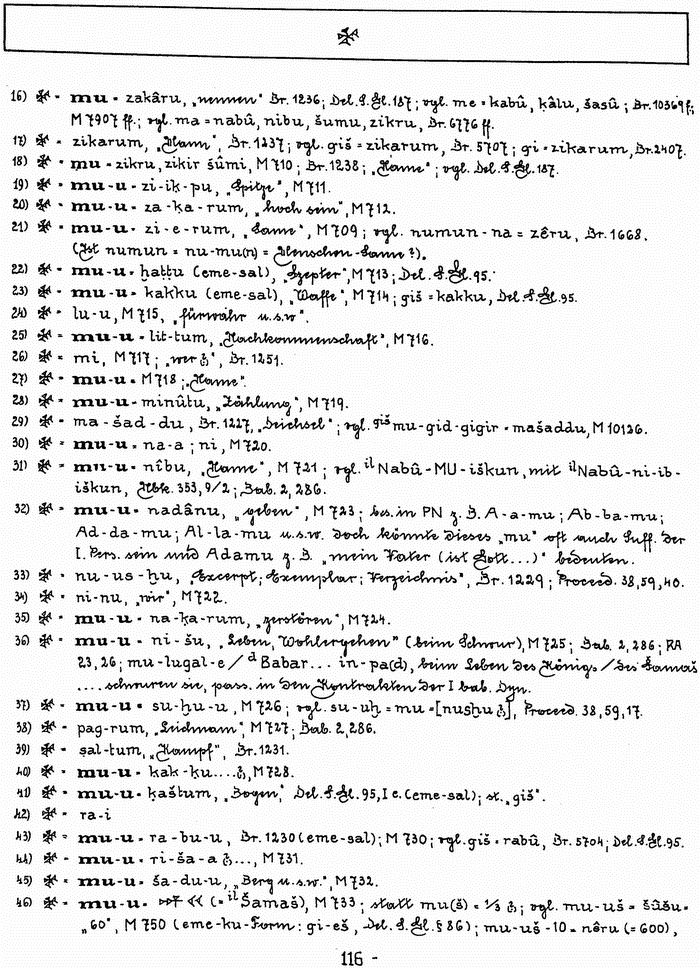 16) 𒈬 = mu = zakâru, „nennen“ Br. 1236; Del. S. Gl. 187; vgl. me = kabû, ḳâlu, šasû; Br. 10369 f;
M 7907 ff.; vgl. ma = nabû, nibu, šumu, zikru, Br. 6776 ff.
17) 𒈬 = zikarum, „Mann“, Br. 1237; vgl. giš = zikarum, Br. 5707; gi = zikarum, Br. 2407.
18) 𒈬 = mu = zikru, zikir šûmi, M 710; Br. 1238; „Name“; vgl. Del. S. Gl. 187.
19) 𒈬 = mu-u = zi-iḳ-pu, „Spitze“, M 711.
20) 𒈬 = mu-u = za-ḳa-rum, „hoch sein“, M 712.
21) 𒈬 = mu-u = zi-e-rum, „Same“, M 709; vgl. numun-na = zêru, Br. 1668.
(Ist numun = nu-mu(n) = Menschen-Same?).
22) 𒈬 = mu-u = ḫaṭṭu (eme-sal), „Szepter“, M 713; Del. S. Gl. 95.
23) 𒈬 = mu-u = kakku (eme-sal), „Waffe“, M 714; giš = kakku, Del. S. Gl. 95.
24) 𒈬 = lu-u, M 715, „fürwahr u.s.w“.
25) 𒈬 = mu-u = lit-tum, „Nachkommenschaft“, M 716.
26) 𒈬 = mi, M 717; „wer“, Br. 1251.
27) 𒈬 = mu-u = M 718; „Name“.
28) 𒈬 = mu-u = minûtu, „Zählung“, M 719.
29) 𒈬 = ma-šad-du, Br. 1227, „Deichsel“; vgl. giš mu-gid-gigir = mašaddu, M 10126.
30) 𒈬 = mu-u = na-a; ni, M 720.
31) 𒈬 = mu-u = nîbu, „Name“, M 721; vgl. il Nabû-MU-iškun, mit il Nabû-ni-ib-
iškun, 353, 9/2; Bab. 2, 286.
32) 𒈬 = mu-u = nadânu, „geben“, M 723; bes. in PN z. B. A-a-mu; Ab-ba-mu;
Ad-da-mu; Al-la-mu u.s.w. Doch könnte dieses „mu“ oft auch Suff. der
I. Pers. sein und Adamu z. B. „mein Vater (ist Gott...)“ bedeuten.
33) 𒈬 = nu-us-ḫu, „Excerpt; Exemplar; Verzeichnis“, Br. 1229; Proceed. 38, 59, 40.
34) 𒈬 = ni-nu, „wir“, M 722.
35) 𒈬 = mu-u = na-ḳa-rum, „zerstören“, M 724.
36) 𒈬 = mu-u = ni-šu, „Leben, Wohlergehen“ (beim Schwur), M 725; Bab. 2, 286; RA
23, 26; mu-lugal-e / d Babar... in-pa(d), beim Leben des Königs / des Šamaš
.... schwuren sie, pass. in den Kontrakten der I bab. Dyn.
37) 𒈬 = mu-u = su-ḫu-u, M 726; vgl. su-uḫ = mu = [nusḫu], Proceed. 38, 59, 17.
38) 𒈬 = pag-rum, „Leichnam“, M 727; Bab. 2, 286.
39) 𒈬 = ṣal-tum, „Kampf“, Br. 1231.
40) 𒈬 = mu-u = kak-ku...., M 728.
41) 𒈬 = mu-u = ḳaštum, „Bogen“, Del. S. Gl. 95, I e. (eme-sal); st. „giš“.
42) 𒈬 = ra-i
43) 𒈬 = mu-u = ra-bu-u, Br. 1230 (eme-sal); M 730; vgl. giš = rabû, Br. 5704; Del. S. Gl. 95.
44) 𒈬 = mu-u = ri-ša-a ..., M 731.
45) 𒈬 = mu-u = ša-du-u, „Berg u.s.w.“, M 732.
46) 𒈬 = mu-u = (= il Šamaš), M 733; statt mu(š) = 1/3; vgl. mu-uš = šûšu =
„60“, M 750 (eme-ku-Form: gi-eš, Del. S. Gl. § 86); mu-uš-10 = nêru (= 600),
116 -